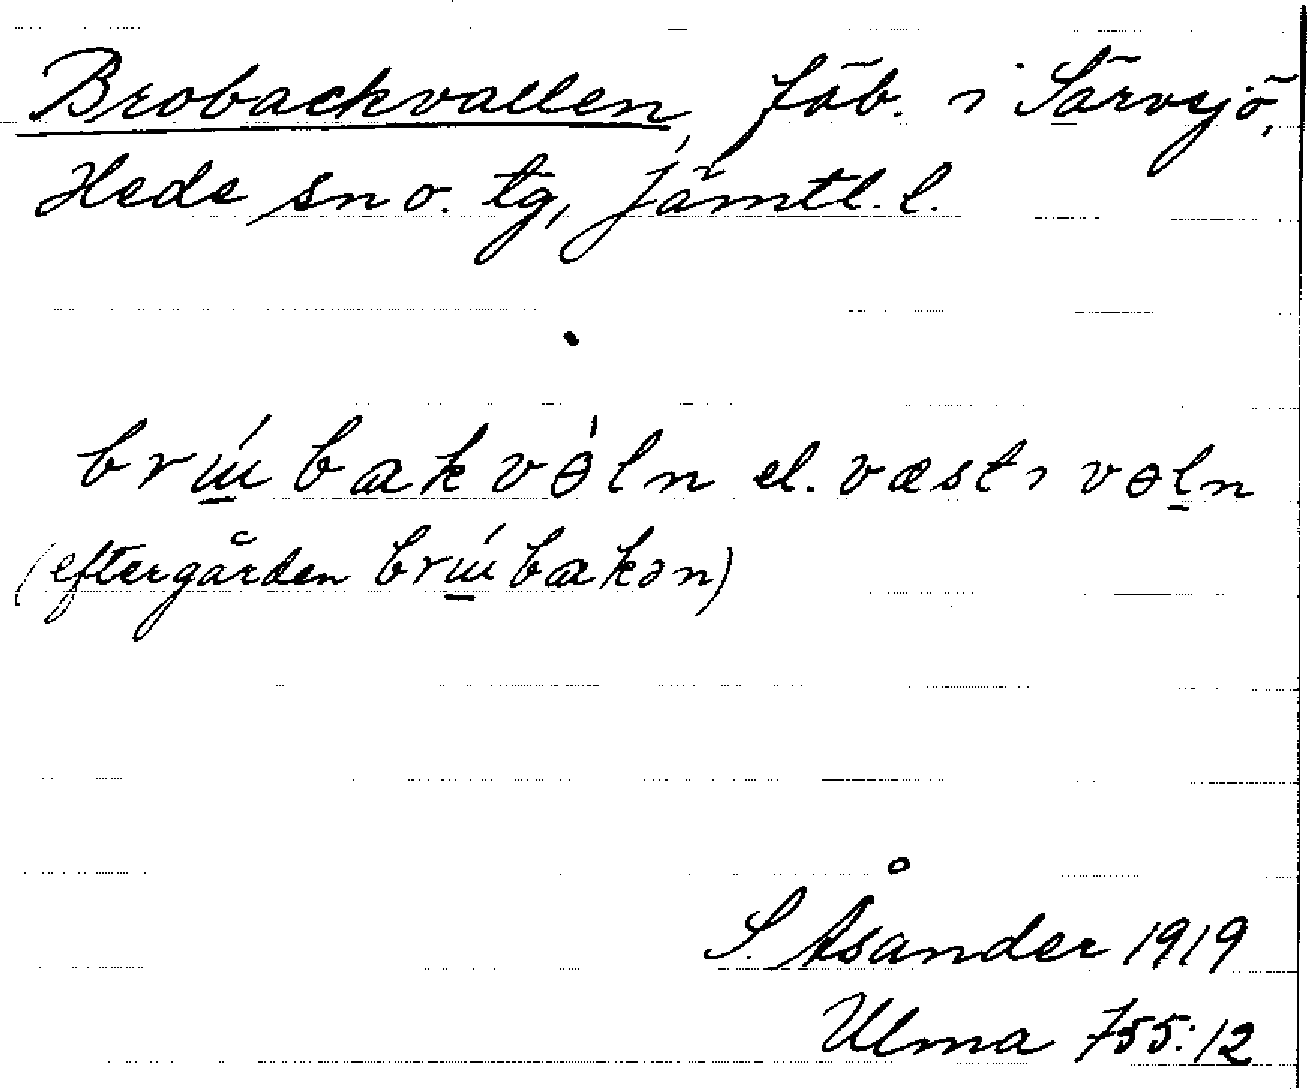 Brobackvallen, fäb. i Särvsjö,
Hede sn o. tg, Jämtl. l.
brɯ́bakvɵ̀ln el. væstɩ vɵl̠n
(eftergården brɯ́bakən)
S. Åsander 1919
Ulma 755:12